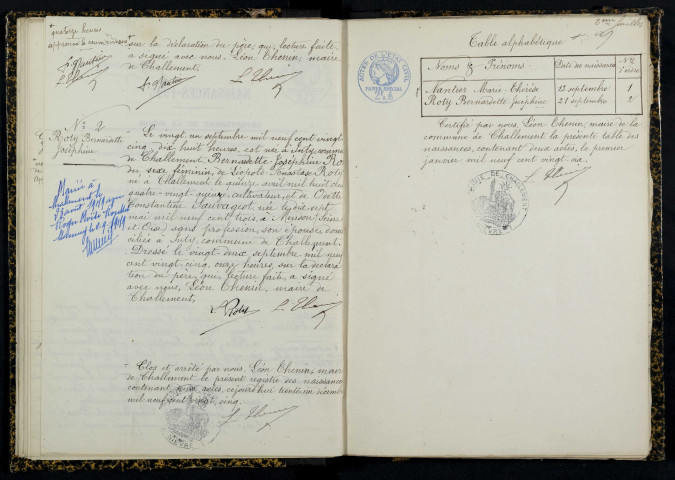 quatorze heures
sur la déclaration du père, qui, lecture faite
a signé avec nous, Léon Chenin, maire
de Challement.
N° 2
Roty Bernardette
Joséphine
Le vingt un septembre mil neuf cent vingt
cinq, dix huit heures, est née à July, commune
de Challement, Bernadette-Joséphine Ro
du sexe féminin, de Léopold-Anastase Roty,
né à Challement le quinze avril mil huit cent
quatre-vingt-quinze, cultivateur, et de Odette
Constantine Sauvageot, née le dix-sept
mai mil neuf cent trois, à Meudon (Seine
et Oise) sans profession, son épouse, domi
ciliés à July, commune de Challement.
Dressé le vingt-deux septembre mil neuf
cent vingt-cinq, onze heures, sur la déclara
tion du père, qui, lecture faite, a signé
avec nous, Léon Chenin, maire de
Challement.
Marié à
1949
Roty
L. Chenin
Clos et arrêté par nous, Léon Chenin, maire
de Challement le présent registre des naissances
contenant deux actes, ce jourd'hui trente un décembre
mil neuf cent vingt cinq.
L. Chenin
2ème feuillet
Table alphabétique
ACTES DE L'ETAT CIVIL
PAPIER SPECIAL
Noms & Prénoms Date des naissances Nos d'ordre
Nantier Marie-Thérèse 13 septembre 1
Roty Bernardette Joséphine 21 septembre 2
Certifié par nous, Léon Chenin, maire de la
commune de Challement la présente table des
naissances, contenant deux actes, le premier
janvier mil neuf cent vingt-six.
L. Chenin
MAIRIE DE CHALLEMENT